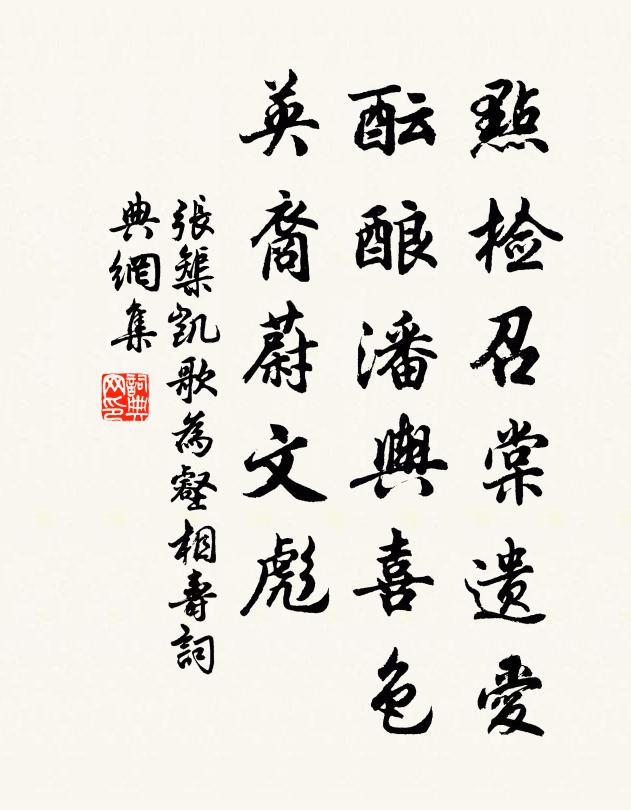 點檢召棠遺愛
酝酿潘輿喜色
英裔蔚文彪
張榘凱歌為壑相壽詞
典網集
詞典
网印